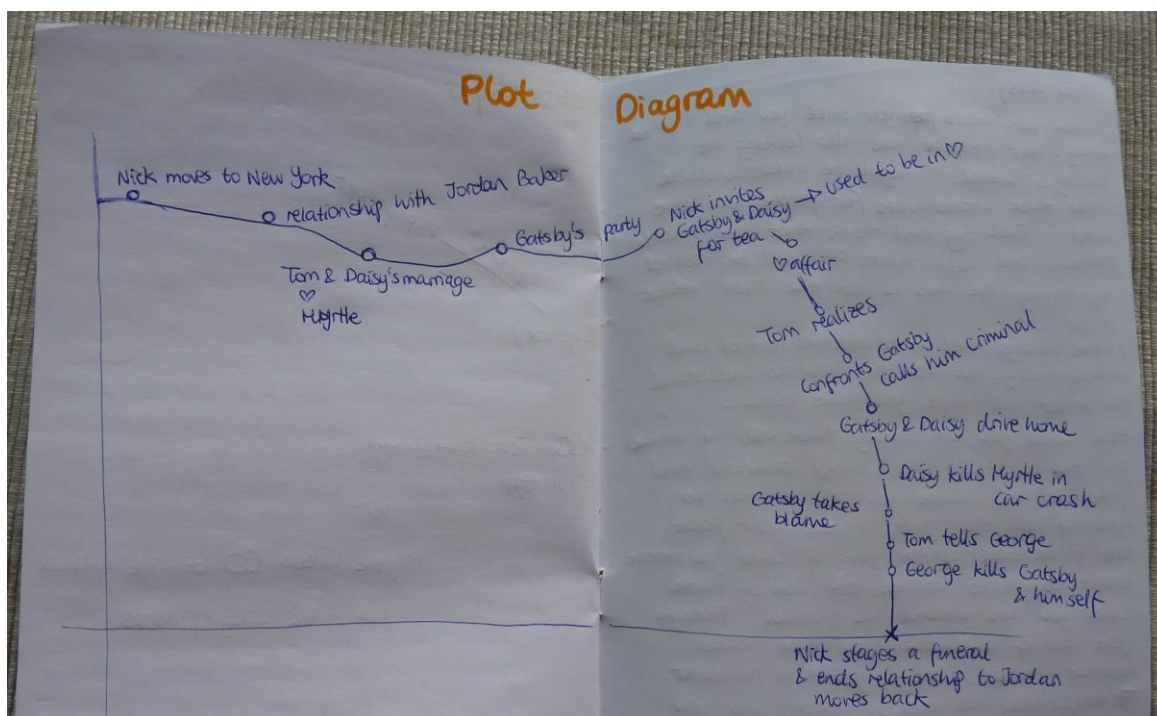 Plot Diagram
Nick moves to New York
relationship with Jordan Baker
Tom & Daisy's marriage
♡
Myrtle
Gatsby's party
Nick invites
Gatsby & Daisy → used to be in ♡
for tea
♡ affair
Tom realizes
Confronts Gatsby
calls him criminal
Gatsby & Daisy drive home
Daisy kills Myrtle in
car crash
Gatsby takes
blame
Tom tells George
George kills Gatsby
& himself
Nick stages a funeral
& ends relationship to Jordan
moves back